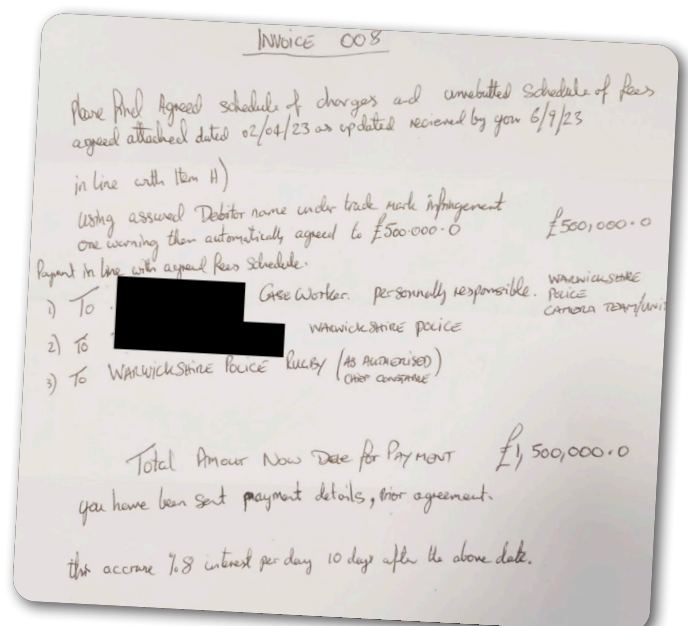 INVOICE 008
Please Find Agreed schedule of charges and unrebutted Schedule of fees
agreed attached dated 02/04/23 as updated recieved by you 6/9/23
in line with Item H)
Using assured Debitor name under trade mark infringement
one warning then automatically agreed to £500.000.0 £500,000.0
Payment in line with agreed fees Schedule.
1) To CASE WORKER. personnally responsible. WARWICKSHIRE
POLICE
CAMERA TEAM/UNIT
2) To WARWICKSHIRE POLICE
3) To WARWICKSHIRE POLICE RUGBY (AS AUTHORISED)
CHIEF CONSTABLE
Total Amout Now Due for PAYMENT £1,500,000.0
you have been sent payment details, prior agreement.
this accrue %8 interest per day 10 days after the above date.